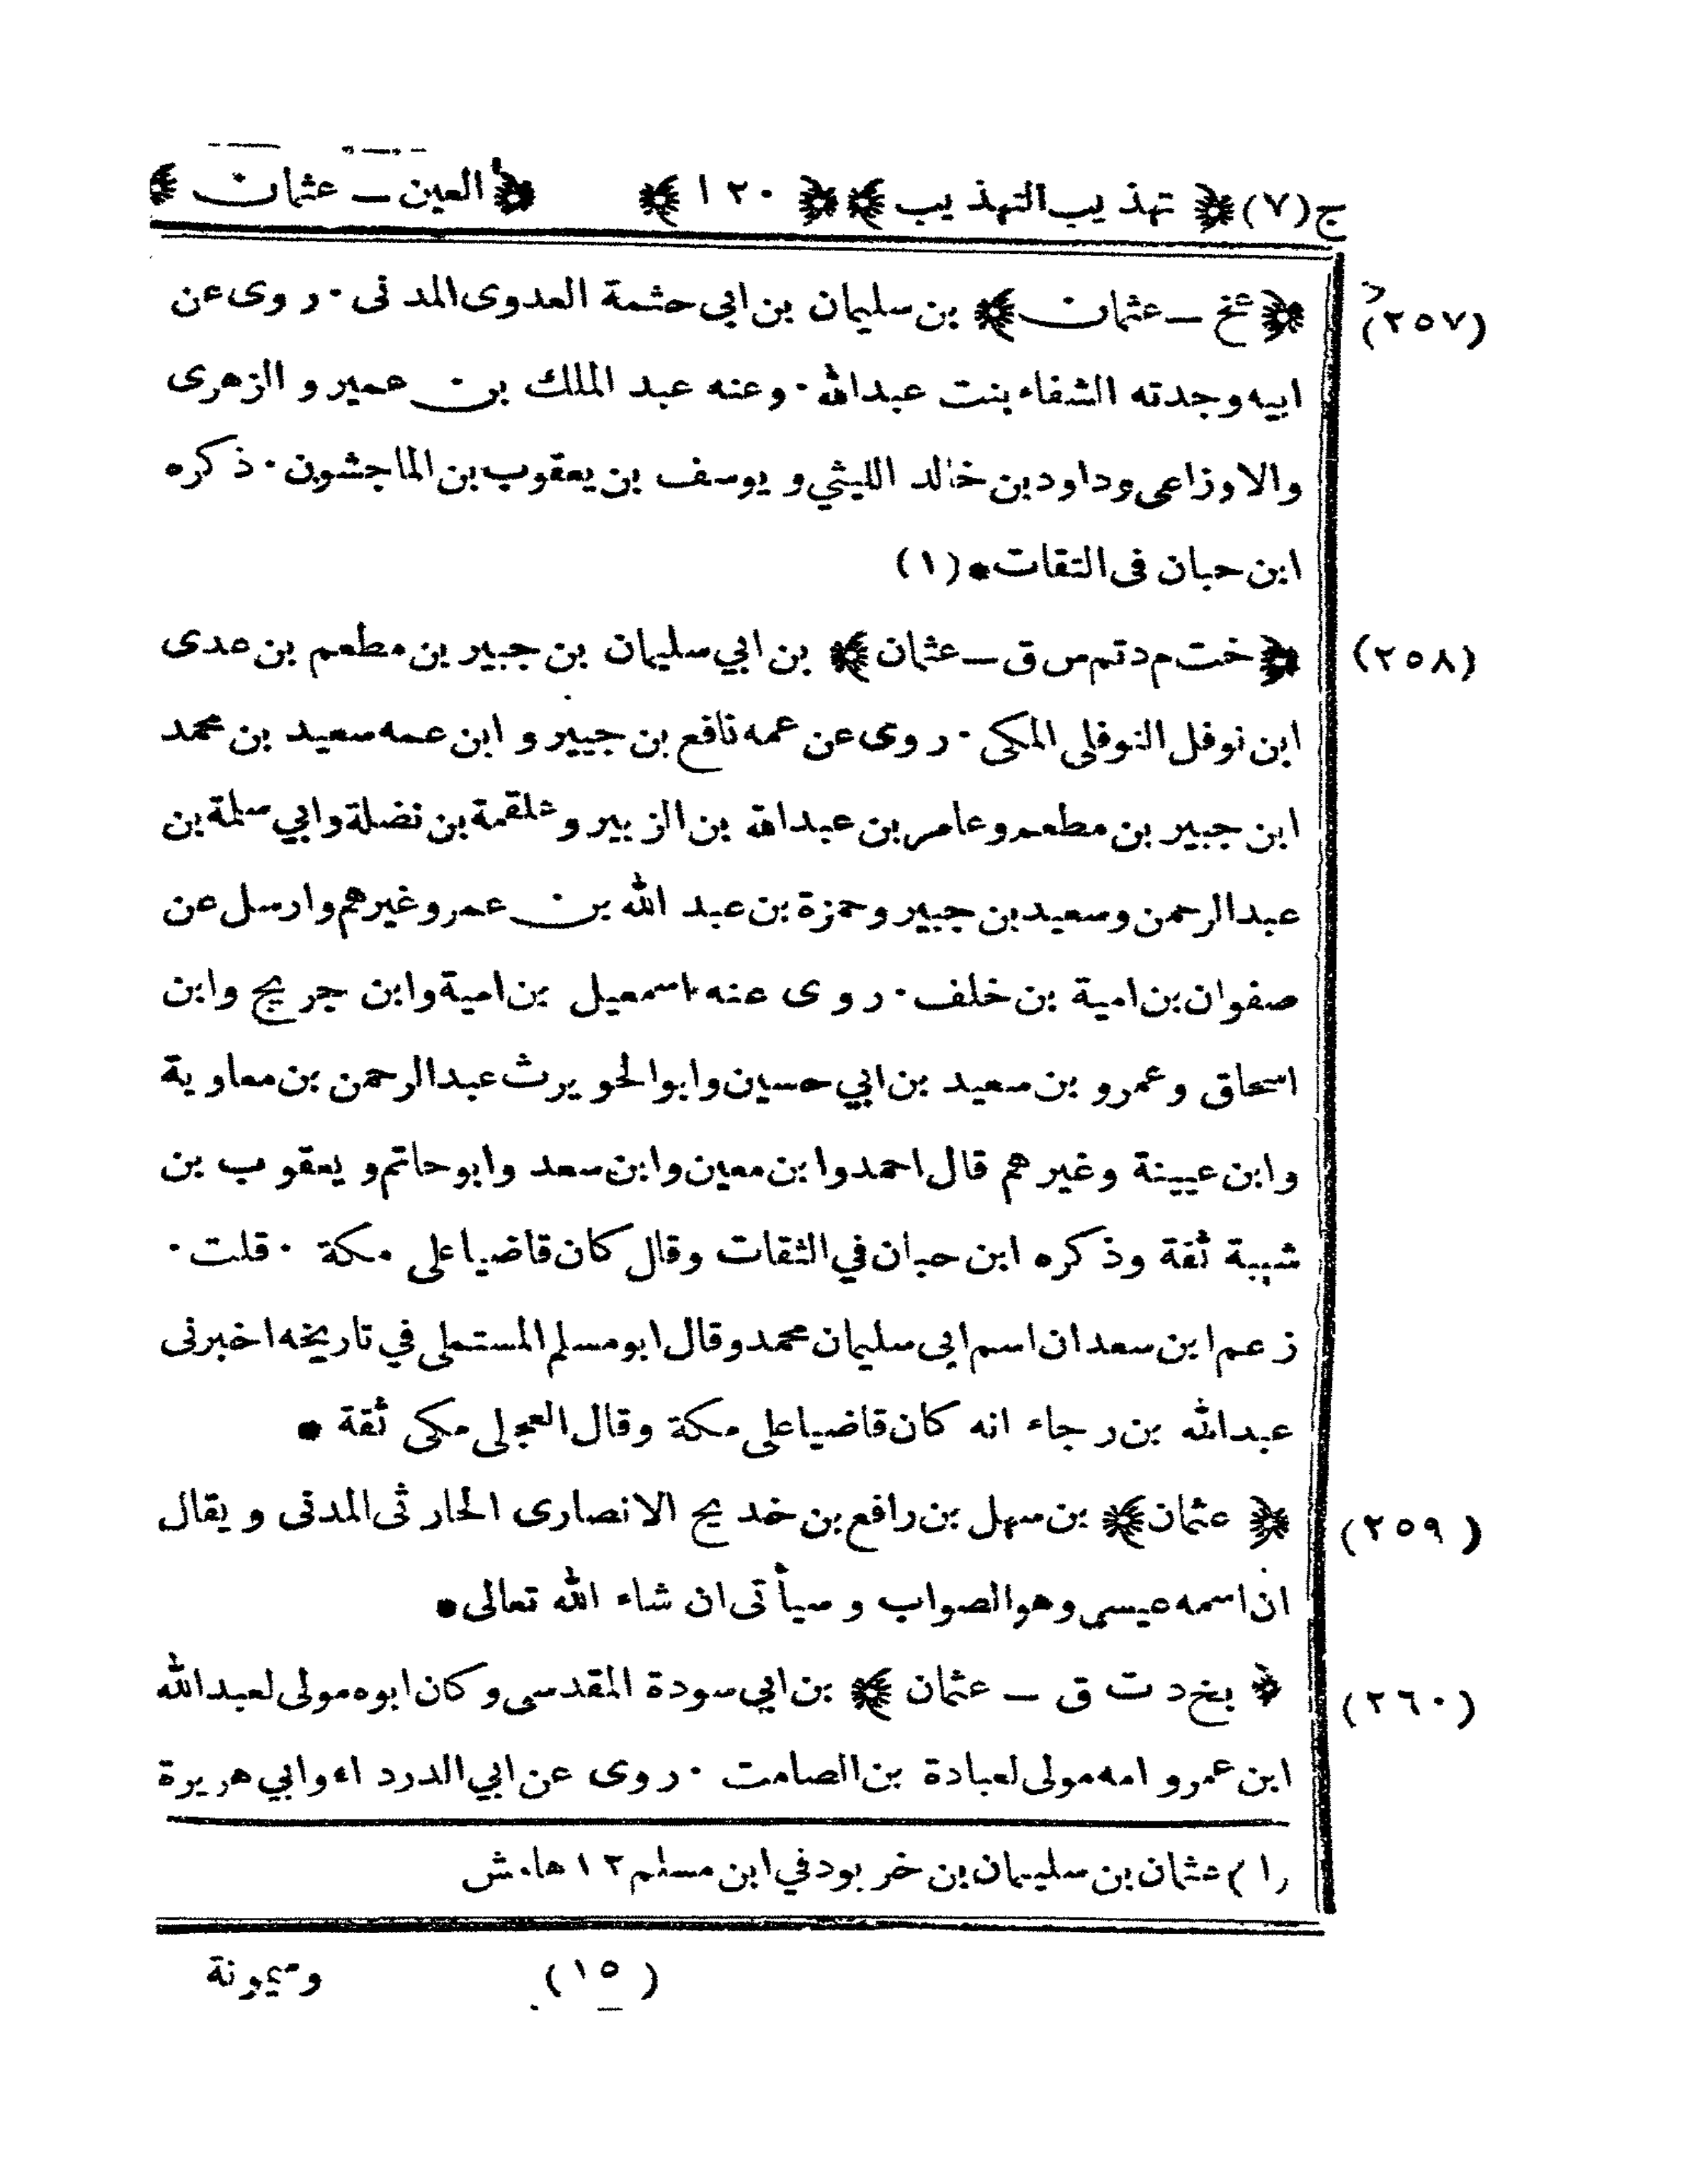 ج(٧) ﴿ تهذيب التهذيب ﴾ ﴿ ١٢٠ ﴾ ﴿ العين ـ عثمان ﴾
(٢٥٧) ﴿ عخ ـ عثمان ﴾ بن سليمان بن ابي حثمة العدوى المدنى ٠ روى عن
ابيه وجدته الشفاء بنت عبدالله ٠ وعنه عبد الملك بن عمير و الزهرى
والاوزاعى وداود بن خالد الليثي و يوسف بن يعقوب بن الماجشون ٠ ذكره
ابن حبان فى الثقات * (١)
(٢٥٨) ﴿ خت م د تم س ق ـ عثمان ﴾ بن ابي سليمان بن جبير بن مطعم بن عدى
ابن نوفل النوفلى المكى ٠ روى عن عمه نافع بن جبير و ابن عمه سعيد بن محمد
ابن جبير بن مطعم وعامر بن عبدالله بن الزبير وعلقمة بن نضلة وابي سلمة بن
عبدالرحمن وسعيد بن جبير وحمزة بن عبد الله بن عمر وغيرهم وارسل عن
صفوان بن امية بن خلف ٠ روى عنه اسمعيل بن امية وابن جريج وابن
اسحاق وعمرو بن سعيد بن ابي حسين وابوالحويرث عبدالرحمن بن معاوية
وابن عيينة وغيرهم قال احمد وابن معين وابن سعد وابوحاتم و يعقوب بن
شيبة ثقة وذكره ابن حبان في الثقات وقال كان قاضيا على مكة ٠ قلت ٠
زعم ابن سعد ان اسم ابى سليمان محمد وقال ابومسلم المستملى في تاريخه اخبرنى
عبدالله بن رجاء انه كان قاضيا على مكة وقال العجلى مكى ثقة *
(٢٥٩) ﴿ عثمان ﴾ بن سهل بن رافع بن خديج الانصارى الحارثى المدنى و يقال
ان اسمه عيسى وهو الصواب و سيأتى ان شاء الله تعالى *
(٢٦٠) ﴿ بخ د ت ق ـ عثمان ﴾ بن ابي سودة المقدسى وكان ابوه مولى لعبدالله
ابن عمرو امه مولى لعبادة بن الصامت ٠ روى عن ابي الدرداء وابي هريرة
(١) عثمان بن سليمان بن خربوذ في ابن مسلم ١٢ هامش
(١٥) وميمونة